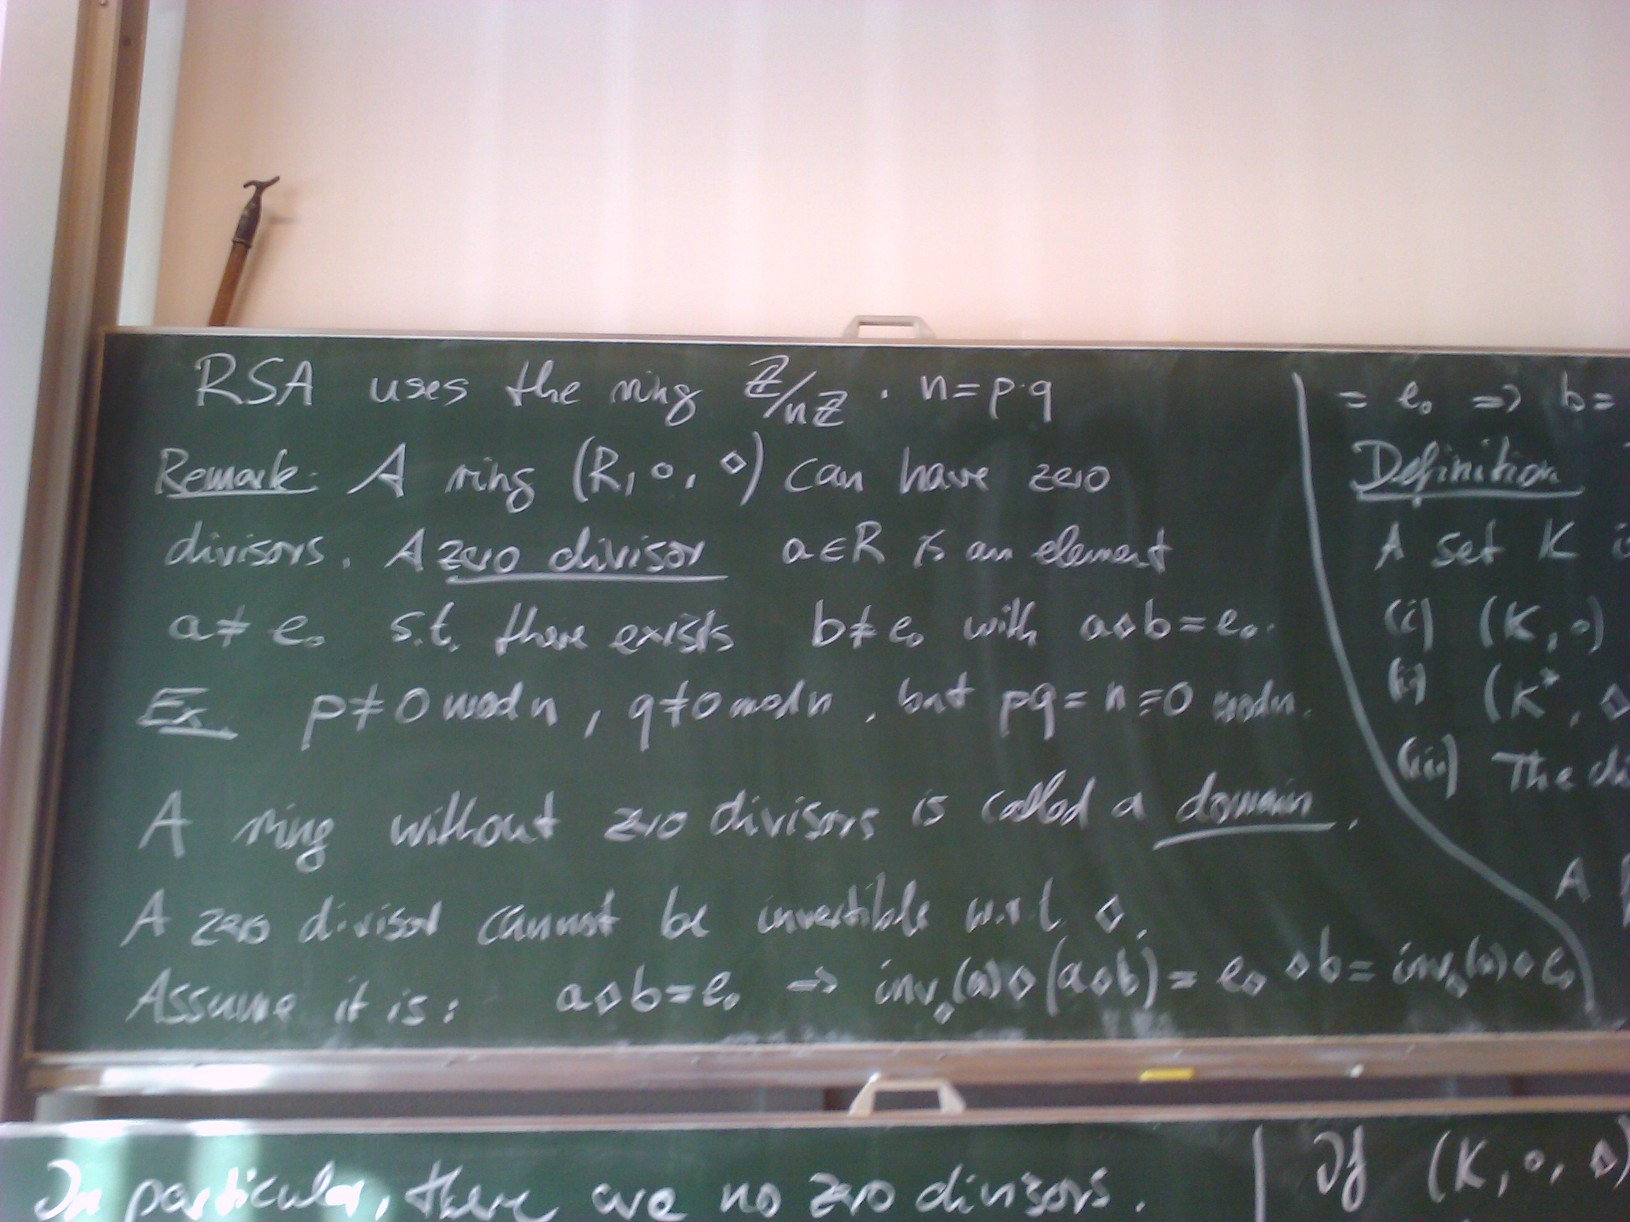 RSA uses the ring ℤ/nℤ . n=p·q
Remark: A ring (R, ∘, ◇) can have zero
divisors. A zero divisor a∈R is an element
a≠e∘ s.t. there exists b≠e∘ with a◇b=e∘.
Ex. p≢0 mod n, q≢0 mod n, but pq=n≡0 mod n.
A ring without zero divisors is called a domain.
A zero divisor cannot be invertible w.r.t ◇.
Assume it is: a◇b=e∘ ⇒ inv◇(a)◇(a◇b)=e◇◇b=inv◇(a)◇e∘
= e∘ ⇒ b=
Definition
A set K
(i) (K, ∘)
(ii) (K*, ◇
(iii) The di
A
In particular, there are no zero divisors.
If (K, ∘, ◇)